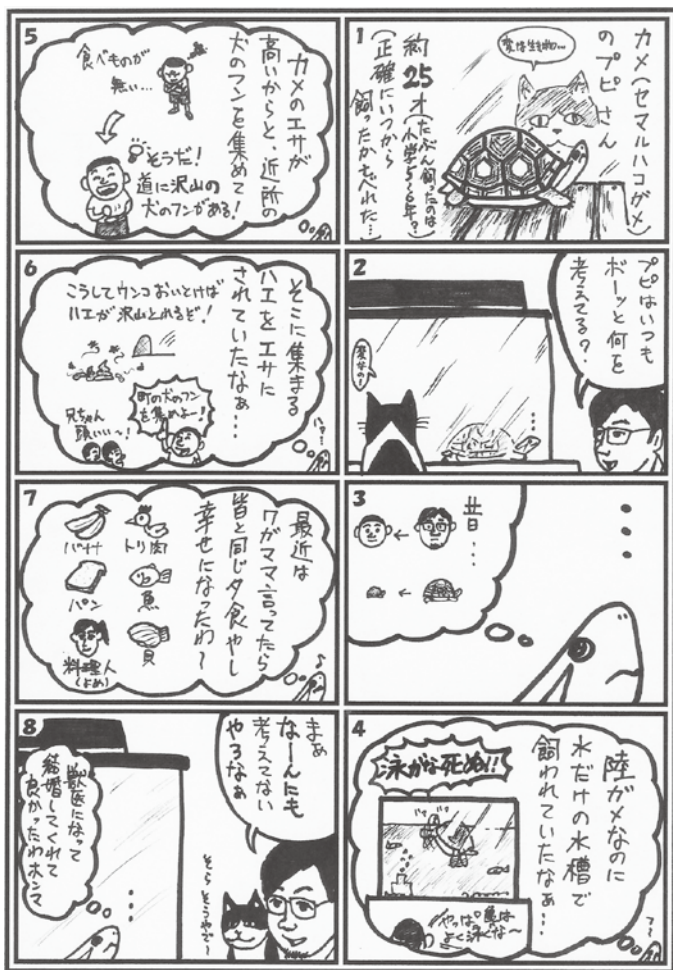 1
カメ(セマルハコガメ)
のプピさん
約25才
(たぶん飼ったのは
小学5~6年?)
(正確にいつから
飼ったかどわすれた…)
2
プピはいつも
ボーッと何を
考えてる?
変なの!
…
3
…
昔…
4
陸ガメなのに
水だけの水槽で
飼われていたなぁ…
泳がな死ぬ!!
やっぱ亀は
よく泳ぐな~
フ~
5
カメのエサが
高いからと、近所の
犬のフンを集めて
食べものが
無い…
そうだ!
道に沢山の
犬のフンがある!
6
そこに集まる
ハエをエサに
されていたなぁ…
こうしてウンコおいとけば
ハエが沢山とれるぞ!
町の犬のフン
を集めよー!
兄ちゃん
頭いい~!
ハァ~
7
最近は
ワガママ言ってたら
皆と同じ夕食やし
幸せになったわ~
トリ肉
バナナ
魚
パン
貝
料理人
(よめ)
♪
8
まぁ
なーんにも
考えてない
やろなぁ
そらそうやで~
…
獣医になって
結婚してくれて
良かったわホンマ